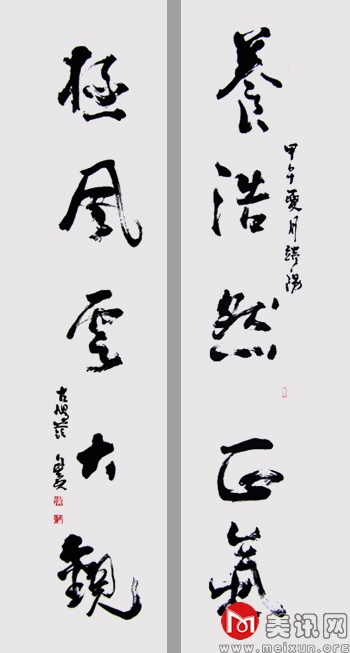 養浩然正氣
甲午夏月
極風雲大觀
美讯网
www.meixun.org